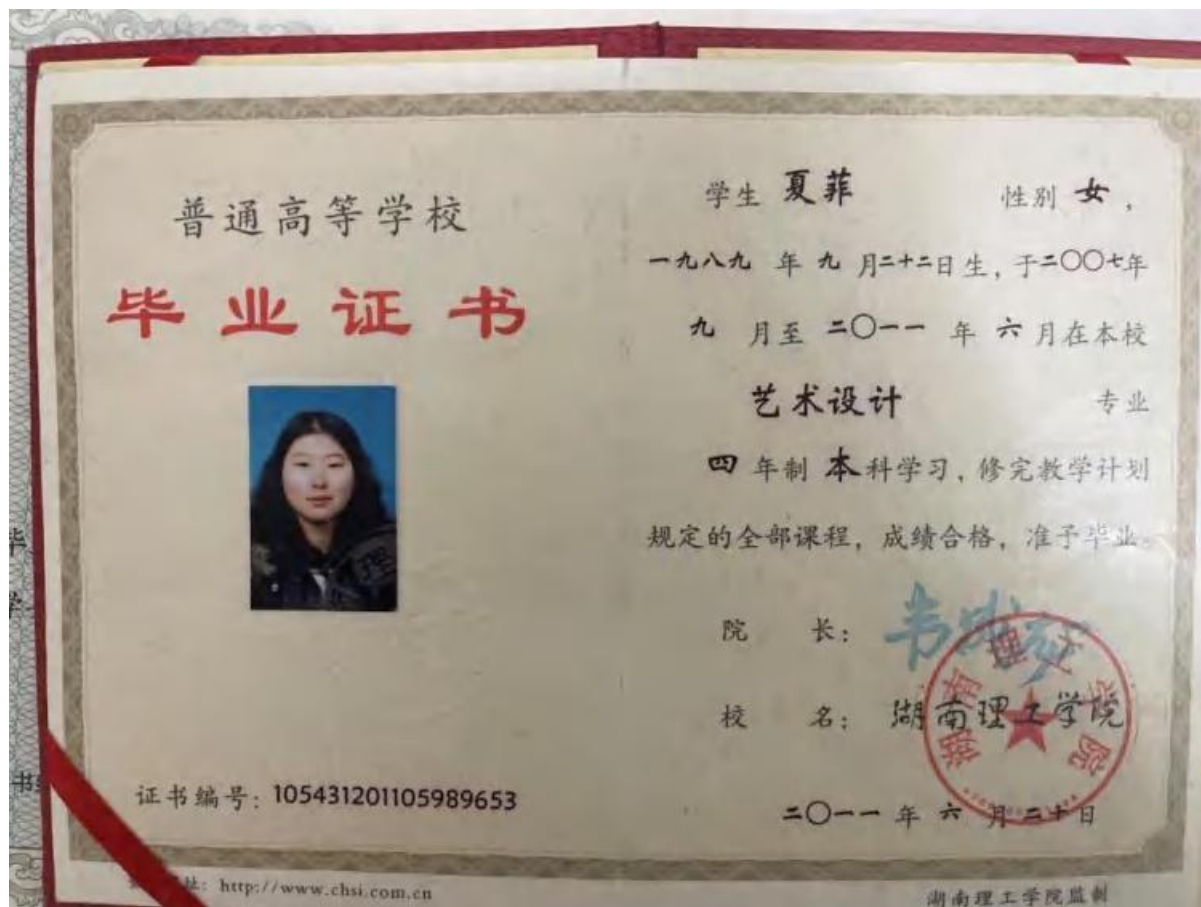 普通高等学校
毕业证书
证书编号：105431201105989653
学生 夏菲 性别 女，
一九八九 年 九 月二十二日生，于二〇〇七年
九 月至 二〇一一 年 六 月在本校
艺术设计 专业
四 年制 本科学习，修完教学计划
规定的全部课程，成绩合格，准予毕业。
院 长：
校 名：湖南理工学院
湖南理工学院
二〇一一 年 六 月二十日
址：http://www.chsi.com.cn
湖南理工学院监制